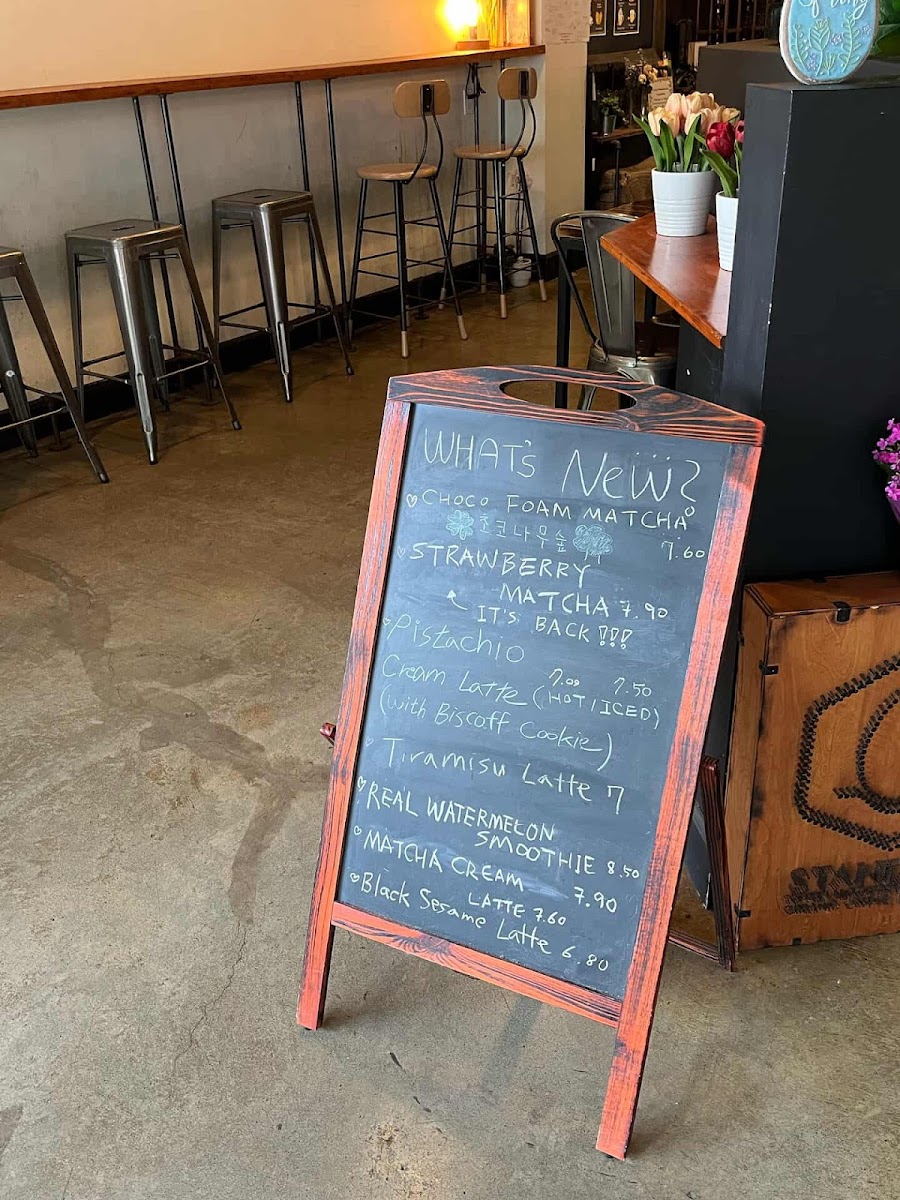 WHAT'S NEW?
CHOCO FOAM MATCHA
초코나무숲 7.60
STRAWBERRY
MATCHA 7.90
IT'S BACK!!!
Pistachio
7.00 7.50
Cream Latte (HOT/ICED)
(with Biscoff Cookie)
Tiramisu Latte 7
REAL WATERMELON
SMOOTHIE 8.50
MATCHA CREAM 7.90
LATTE 7.60
Black Sesame Latte 6.80